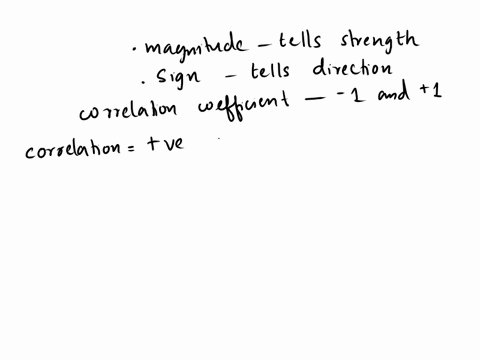 . magnitude – tells strength
. Sign – tells direction
correlation coefficient – -1 and +1
correlation = +ve